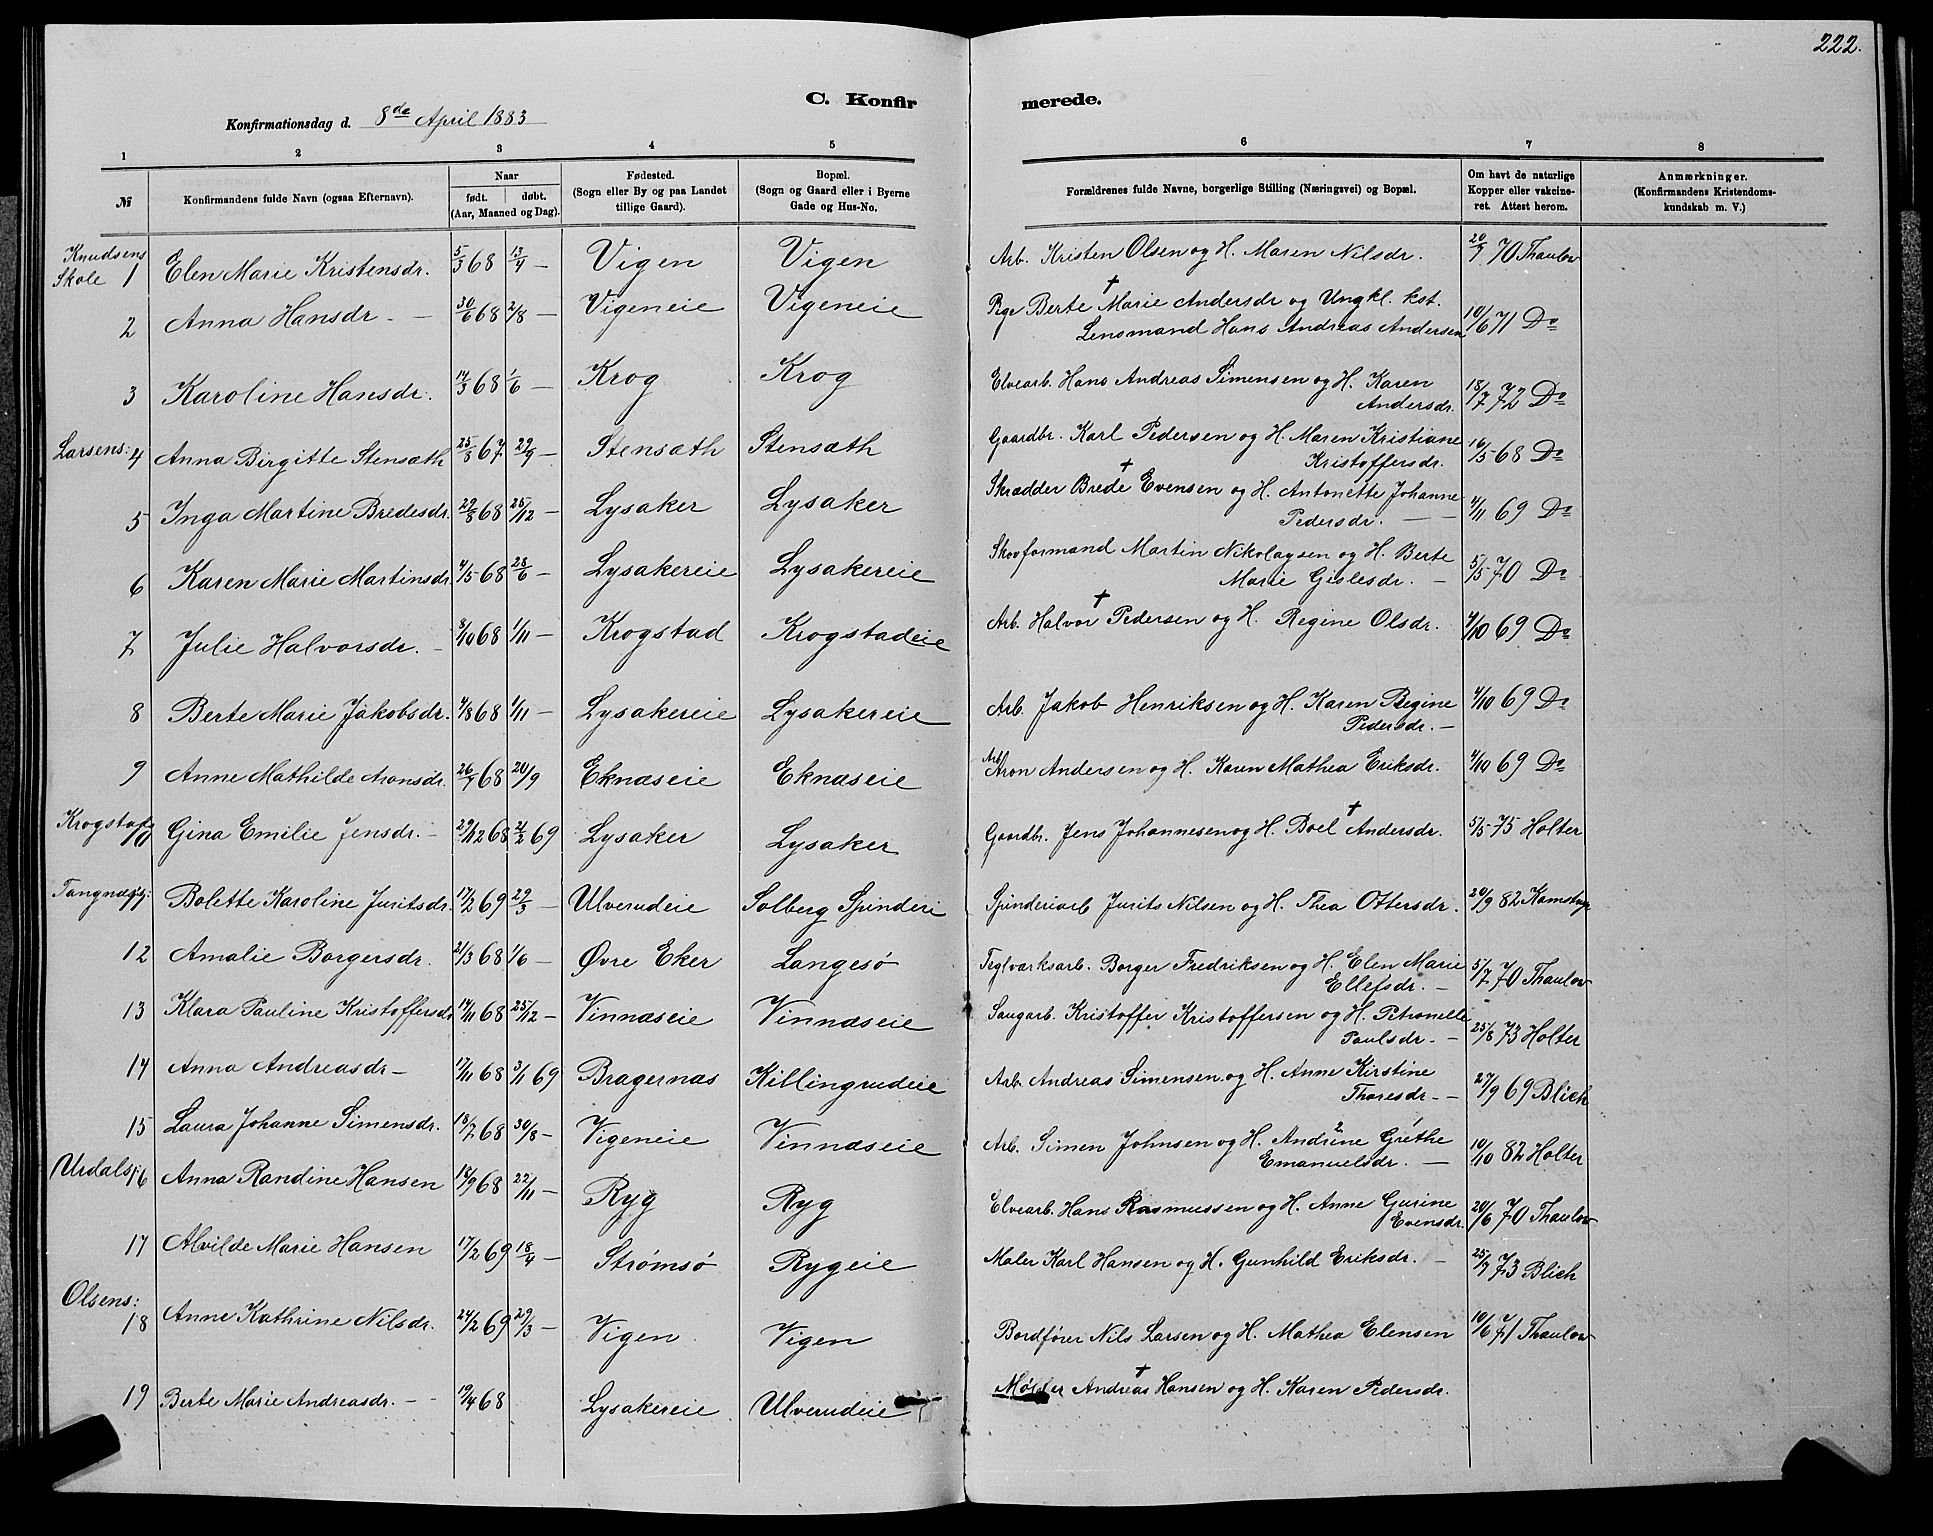 222.
C. Konfirmerede.
Konfirmationsdag d. 8de April 1883
1 2 3 4 5 6 7 8
№
Konfirmandens fulde Navn (ogsaa Efternavn).
Naar
født. døbt.
(Aar, Maaned og Dag).
Fødested.
(Sogn eller By og paa Landet
tillige Gaard).
Bopæl.
(Sogn og Gaard eller i Byerne
Gade og Hus-No.
Forældrenes fulde Navne, borgerlige Stilling (Næringsvei) og Bopæl.
Om havt de naturlige
Kopper eller vakcine-
ret. Attest herom.
Anmærkninger.
(Konfirmandens Kristendoms-
kundskab m. V.)
Knudsens
Skole 1 Elen Marie Kristensdr. 5/3 68 13/4 — Vigen Vigen Arb. Kristen Olsen og H. Maren Nilsdr. 20/7 70 Thaulow
2 Anna Hansdr — 30/6 68 2/8 — Vigeneie Vigeneie Pge Berte † Marie Andersdr og Ungkl. kst.
Lensmand Hans Andreas Andersen 10/6 71 Do
3 Karoline Hansdr. 14/3 68 1/6 — Krog Krog Elvearb. Hans Andreas Simensen og H. Karen
Andersdr. 18/7 72 Do
Larsens: 4 Anna Birgitte Stensæth 25/8 67 29/9 — Stensæth Stensæth Gaardbr. Karl Pedersen og H. Maren Kristiane
Kristoffersdr. 16/5 68 Do
5 Inga Martine Bredesdr. 29/8 68 25/12 — Lysaker Lysaker Skrædder Brede † Evensen og H. Antonette Johanne
Pedersdr. — 4/11 69 Do
6 Karen Marie Martinsdr 4/5 68 28/6 — Lysakereie Lysakereie Skovformand Martin Nikolaysen og H. Berte
Marie Gislesdr. — 5/5 70 Do
7 Julie Halvorsdr. 8/10 68 1/11 — Krogstad Krogstadeie Arb. Halvor † Pedersen og H. Regine Olsdr. 4/10 69 Do
8 Berte Marie Jakobsdr. 4/8 68 1/11 — Lysakereie Lysakereie Arb. Jakob Henriksen og H. Karen Regine
Pedersdr. — 4/10 69 Do
9 Anne Mathilde Aronsdr. 26/7 68 20/9 Eknæseie Eknæseie Arb. Aron Andersen og H. Karen Mathea Eriksdr. 4/10 69 Do
Krogstad 10 Gina Emilie Jensdr. — 29/12 68 21/2 69 Lysaker Lysaker Gaardbr. Jens Johannesen og H. Boel † Andersdr. 5/5 75 Holter
11 Bolette Karoline Juritsdr. 17/2 69 29/3 — Ulverudeie Solberg Spinderi Spinderiarb Jurits Nilsen og H. Thea Ottersdr. 20/9 82 Kamstrup
12 Amalie Borgersdr. 21/3 68 1/6 — Øvre Eker Langesø Teglværksarb. Borger Fredriksen og H. Elen Marie
Ellefsdr. — 5/7 70 Thaulow
13 Klara Pauline Kristoffersdr 14/11 68 25/12 — Vinnæseie Vinnæseie Saugarb. Kristoffer Kristoffersen og H. Petronelle
Paulsdr. — 25/8 73 Holter
14 Anna Andreasdr — 17/11 68 3/1 69 Bragernæs Killingrudeie Arb. Andreas Simensen og H. Anne Kirstine
Thoresdr. — 27/9 69 Blich
15 Laura Johanne Simensdr. 18/7 68 30/8 — Vigeneie Vinnæseie Arb. Simen Johnsen og H. Andrine Grethe
Emanuelsdr. — 10/10 82 Holter
Urdals 16 Anna Randine Hansen 18/9 68 22/11 — Ryg Ryg Elvearb. Hans Rasmussen og H. Anne Gurine
Evensdr. 20/6 70 Thaulow
17 Alvilde Marie Hansen 17/2 69 18/4 — Strømsø Rygeie Maler Karl Hansen og H. Gunhild Eriksdr. — 25/7 73 Blich
Olsens:
18 Anne Kathrine Nilsdr. 24/2 69 29/3 — Vigen Vigen Bordfører Nils Larsen og H. Mathea Elensen 10/6 71 Thaulow
19 Berte Marie Andreasdr. — 19/4 68 Lysakereie Ulverudeie Møller Andreas † Hansen og H. Karen Pedersdr.